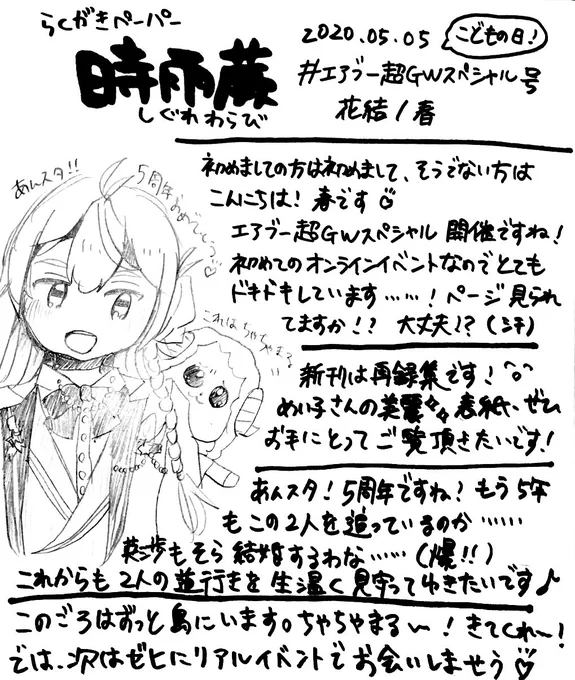 らくがきペーパー
時雨蕨
しぐれわらび
2020.05.05
こどもの日!
#エアブー超GWスペシャル号
花結/春
あんスタ!!
5周年おめでとう♡
これはちゃちゃまる
初めましての方は初めまして、そうでない方は
こんにちは!春です♡
エアブー超GWスペシャル 開催ですね!
初めてのオンラインイベントなのでとても
ドキドキしています……!ページ見られ
てますか!?大丈夫!?(汗)
新刊は再録集です!^o^
めい子さんの美麗✨表紙、ぜひ
お手にとってご覧頂きたいです!
あんスタ!5周年ですね!もう5年
もこの2人を追っているのか……
英歩もそら結婚するわな……(爆!!)
これからも2人の道行きを生温く見守ってゆきたいです♪
このごろはずっと島にいます。ちゃちゃまる〜!きてくれ〜!
では、次はゼヒにリアルイベントでお会いしませう♡